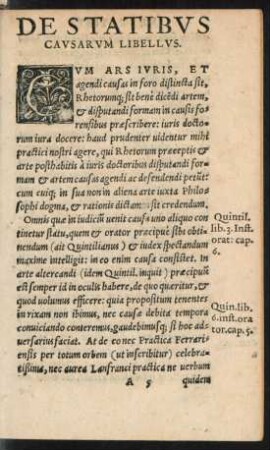 DE STATIBVS
CAVSARVM LIBELLVS.
CVM ARS IVRIS, ET
agendi causas in foro distincta sit,
Rhetorumq́; sit benè dicēdi artem,
& disputandi formam in causis fo
rensibus præscribere: iuris docto-
rum iura docere: haud prudenter uidentur mihi
practici nostri agere, qui Rhetorum præceptis &
arte posthabitis à iuris doctoribus disputandi for-
mam & artem causas agendi ac defendendi petūt:
cum cuiq; in sua non in aliena arte iuxta Philoso
sophi dogma, & rationis dictam sit credendum,
Omnis quæ in iudiciū uenit causa uno aliquo con
tinetur statu, quem & orator præcipuè sibi obti-
nendum (ait Quintilianus) & iudex spectandum
maxime intelligit: in eo enim causa consistet. In
arte altercandi (idem Quintil. inquit) præcipuū
est semper id in oculis habere, de quo quæritur, &
quod uolumus efficere: quia propositum tenentes
in rixam non ibimus, nec causæ debita tempora
conuiciando conteremus, gaudebimusq́; si hoc ad-
uersarius faciat. At de eo nec Practica Ferrari
ensis per totum orbem (ut inscribitur) celebra-
tissima, nec aurea Lanfranci practica ne uerbum
A 5 quidem
Quintil.
lib. 3. Inst.
orat: cap.
6.
Quin. lib.
6. inst. ora
tor. cap. 5.